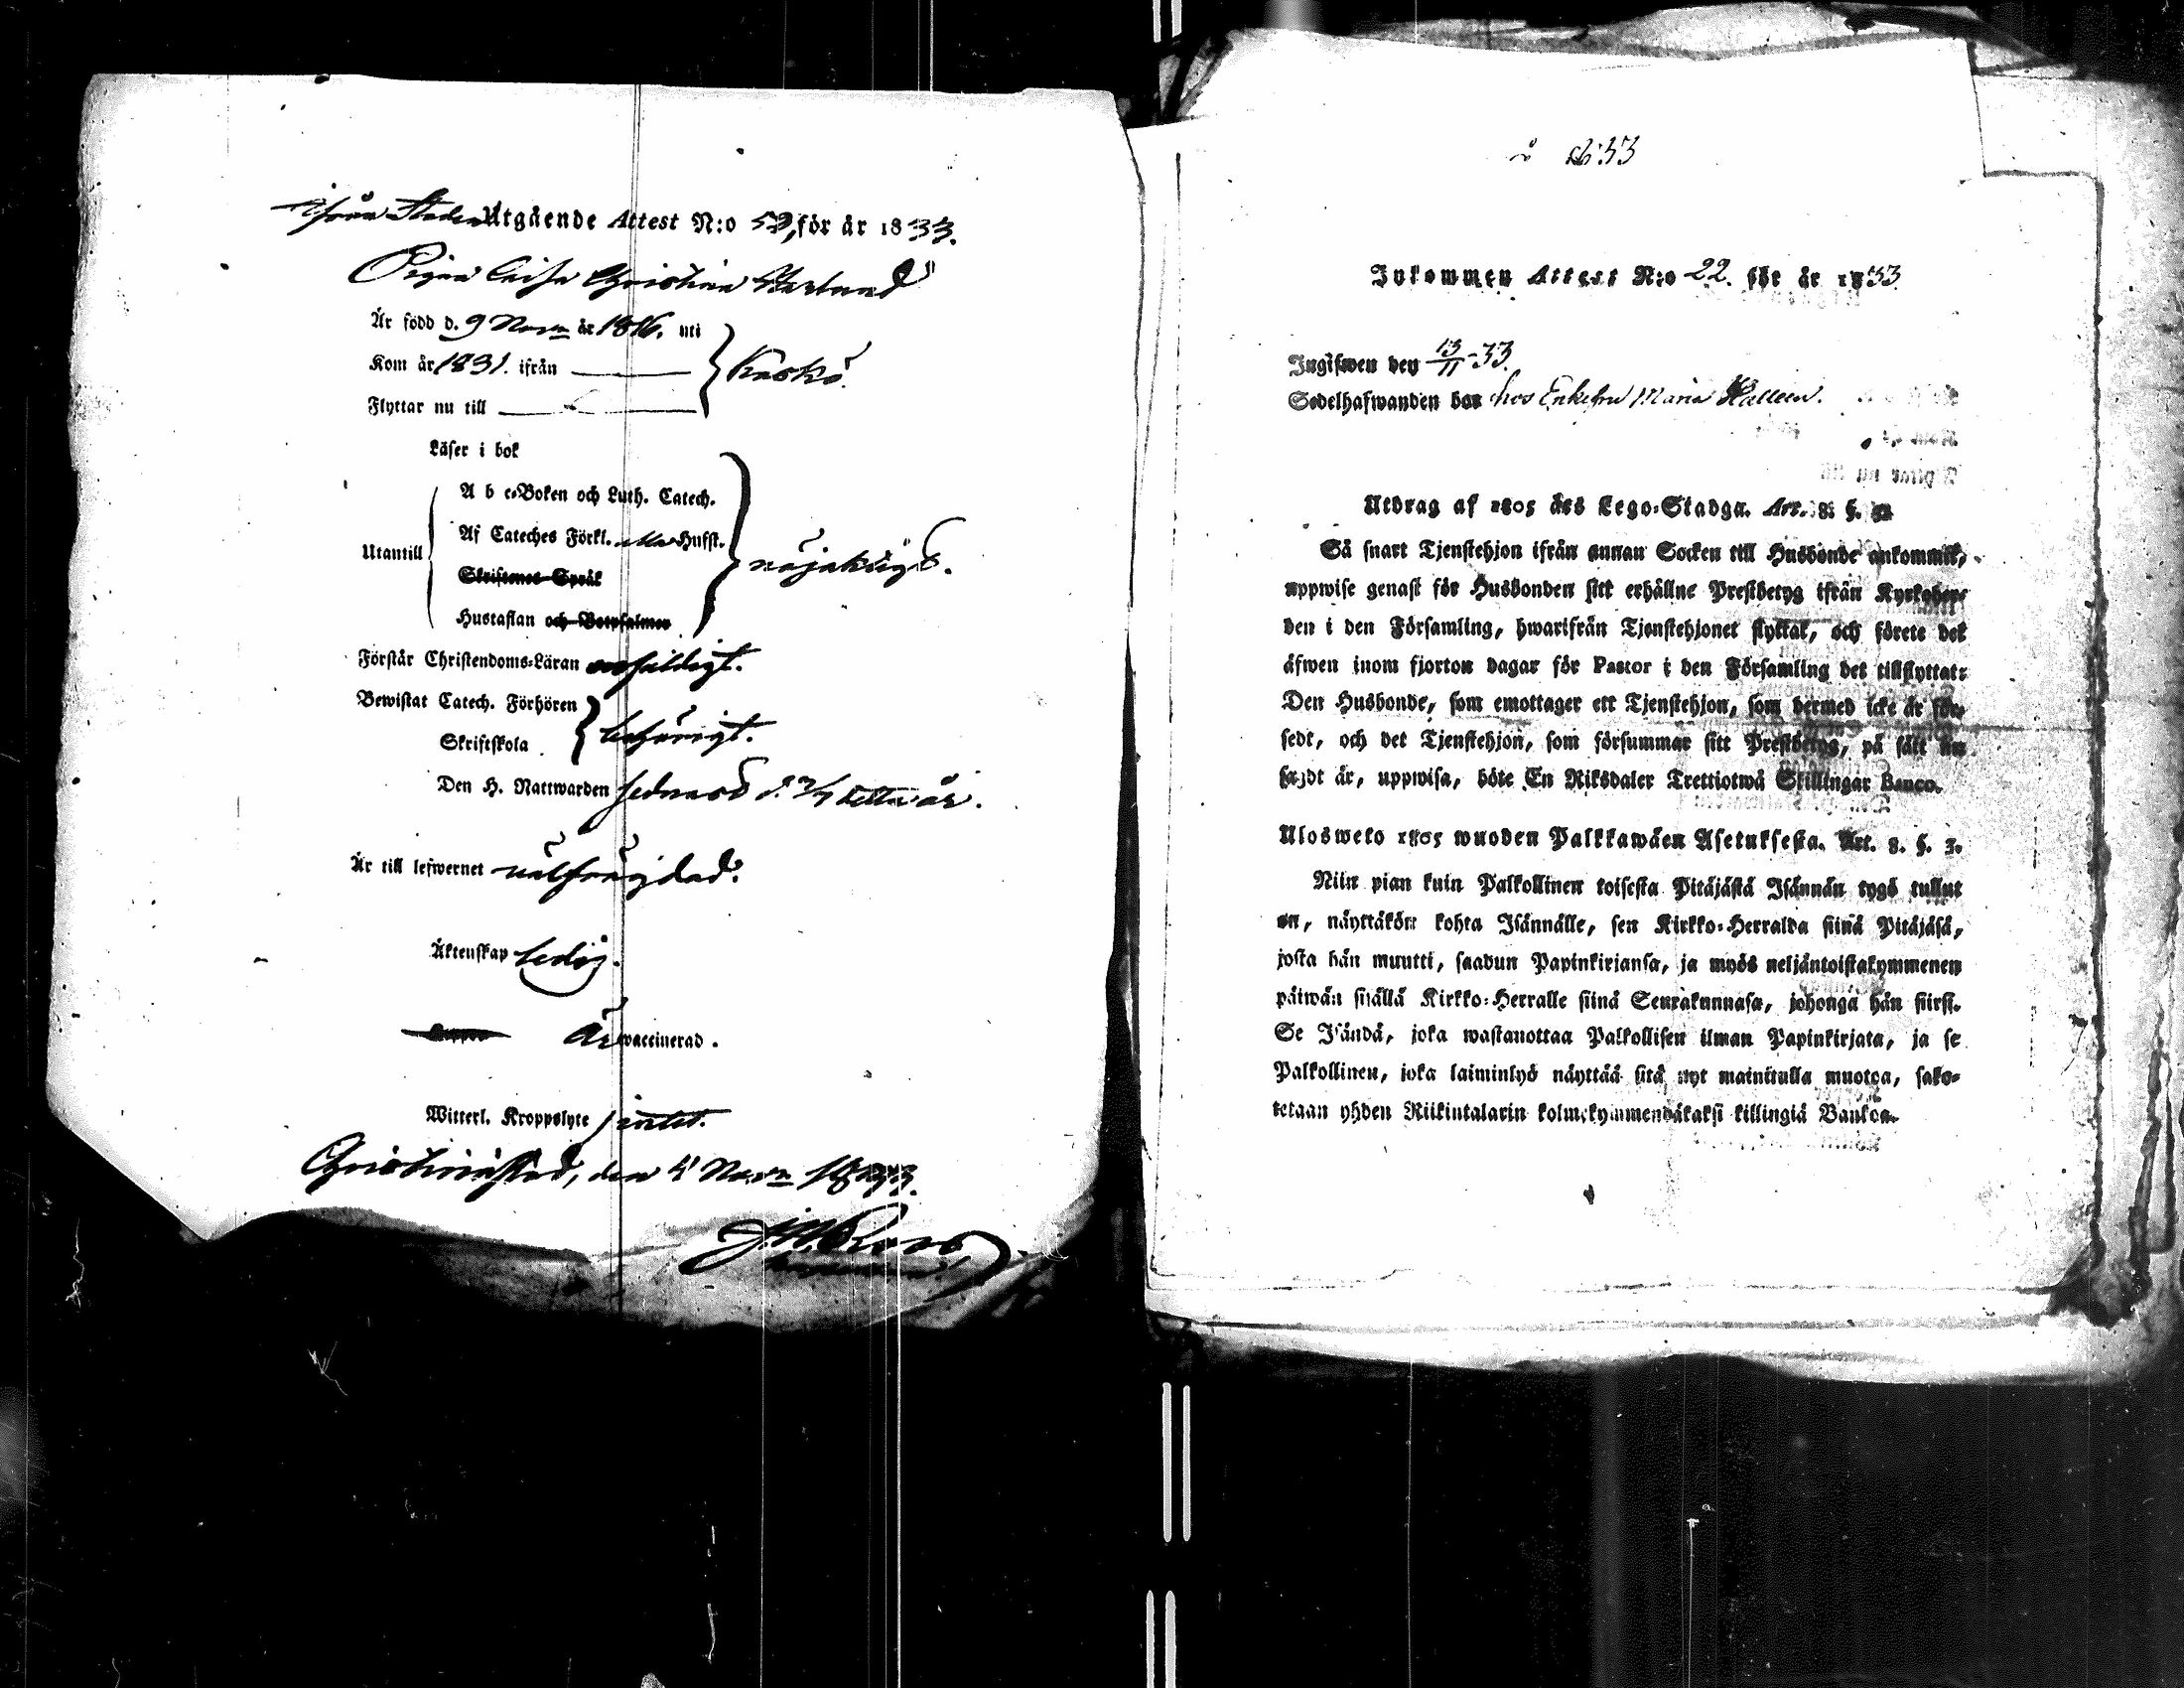 ifrån Staden Utgående Attest N:o 59, för år 1833.
Pigan Caisa Christina
Är född d. 9 Novr år 1816. uti
Kom år 1831. ifrån
Kaskö.
Flyttar nu till
Läser i bok
A b c-Boken och Luth. Catech.
Af Cateches Förkl. Hufst.
Utantill
nöjaktigt.
Skriftenes Språk
Hustaflan och Botpsalmer
Förstår Christendoms-Läran enfaldigt.
Bewistat Catech. Förhören
behörigt.
Skriftskola
Den H. Nattwarden sednast d. 7/7 detta år.
Är till lefwernet wälfrägdad.
Äktenskap ledig.
är waccinerad.
Witterl. Kroppslyte intet.
Christinestad, den 4 Novr 1833.
1833
Inkommen Attest N:o 22. för år 1833
Ingifwen den 13/11-33.
Sedelhafwanden bor hos Enkefru Maria Halleen.
Utdrag af 1805 års Lego-Stadga. Art. 8. §.
Så snart Tjenstehjon ifrån annan Socken till Husbonde ankommit,
uppwise genast för Husbonden sitt erhållne Prestbetyg ifrån Kyrkoher-
den i den Församling, hwarifrån Tjenstehjonet flyttat, och förete det
äfwen inom fjorton dagar för Pastor i den Församling det tillflyttat:
Den Husbonde, som emottager ett Tjenstehjon, som dermed icke är för-
sedt, och det Tjenstehjon, som försummar sitt Prestbetyg, på sätt nu
sagdt är, uppwisa, böte En Riksdaler Trettiotwå Skillingar Banco.
Ulosweto 1805 wuoden Palkkawäen Asetuksesta. Art. 8. §. 3.
Niin pian kuin Palkollinen toisesta Pitäjästä Isännän tygö tullut
on, näyttäkön kohta Isännälle, sen Kirkko-Herralda siinä Pitäjäsä,
josta hän muutti, saadun Papinkirjansa, ja myös neljäntoistakymmenen
päiwän sisällä Kirkko-Herralle siinä Seurakunnasa, johonga hän siirsi.
Se Isändä, joka wastanottaa Palkollisen ilman Papinkirjata, ja se
Palkollinen, joka laiminlyö näyttää sitä nyt mainitulla muotoa, sako-
tetaan yhden Riikintalarin kolmekymmendäkaksi killingiä Bankoa.